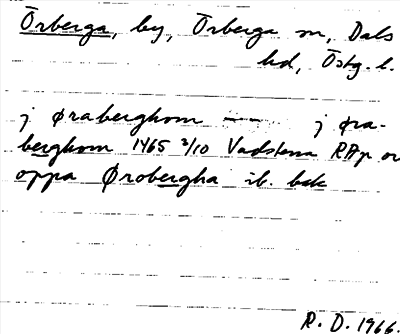 Örberga, by, Örberga sn, Dals
hd, Östg. l.
j øraberghom —— j øra-
berghom 1465 2/10 Vadstena RAp or
oppa Ørobergha ib. bak
R. D. 1966.